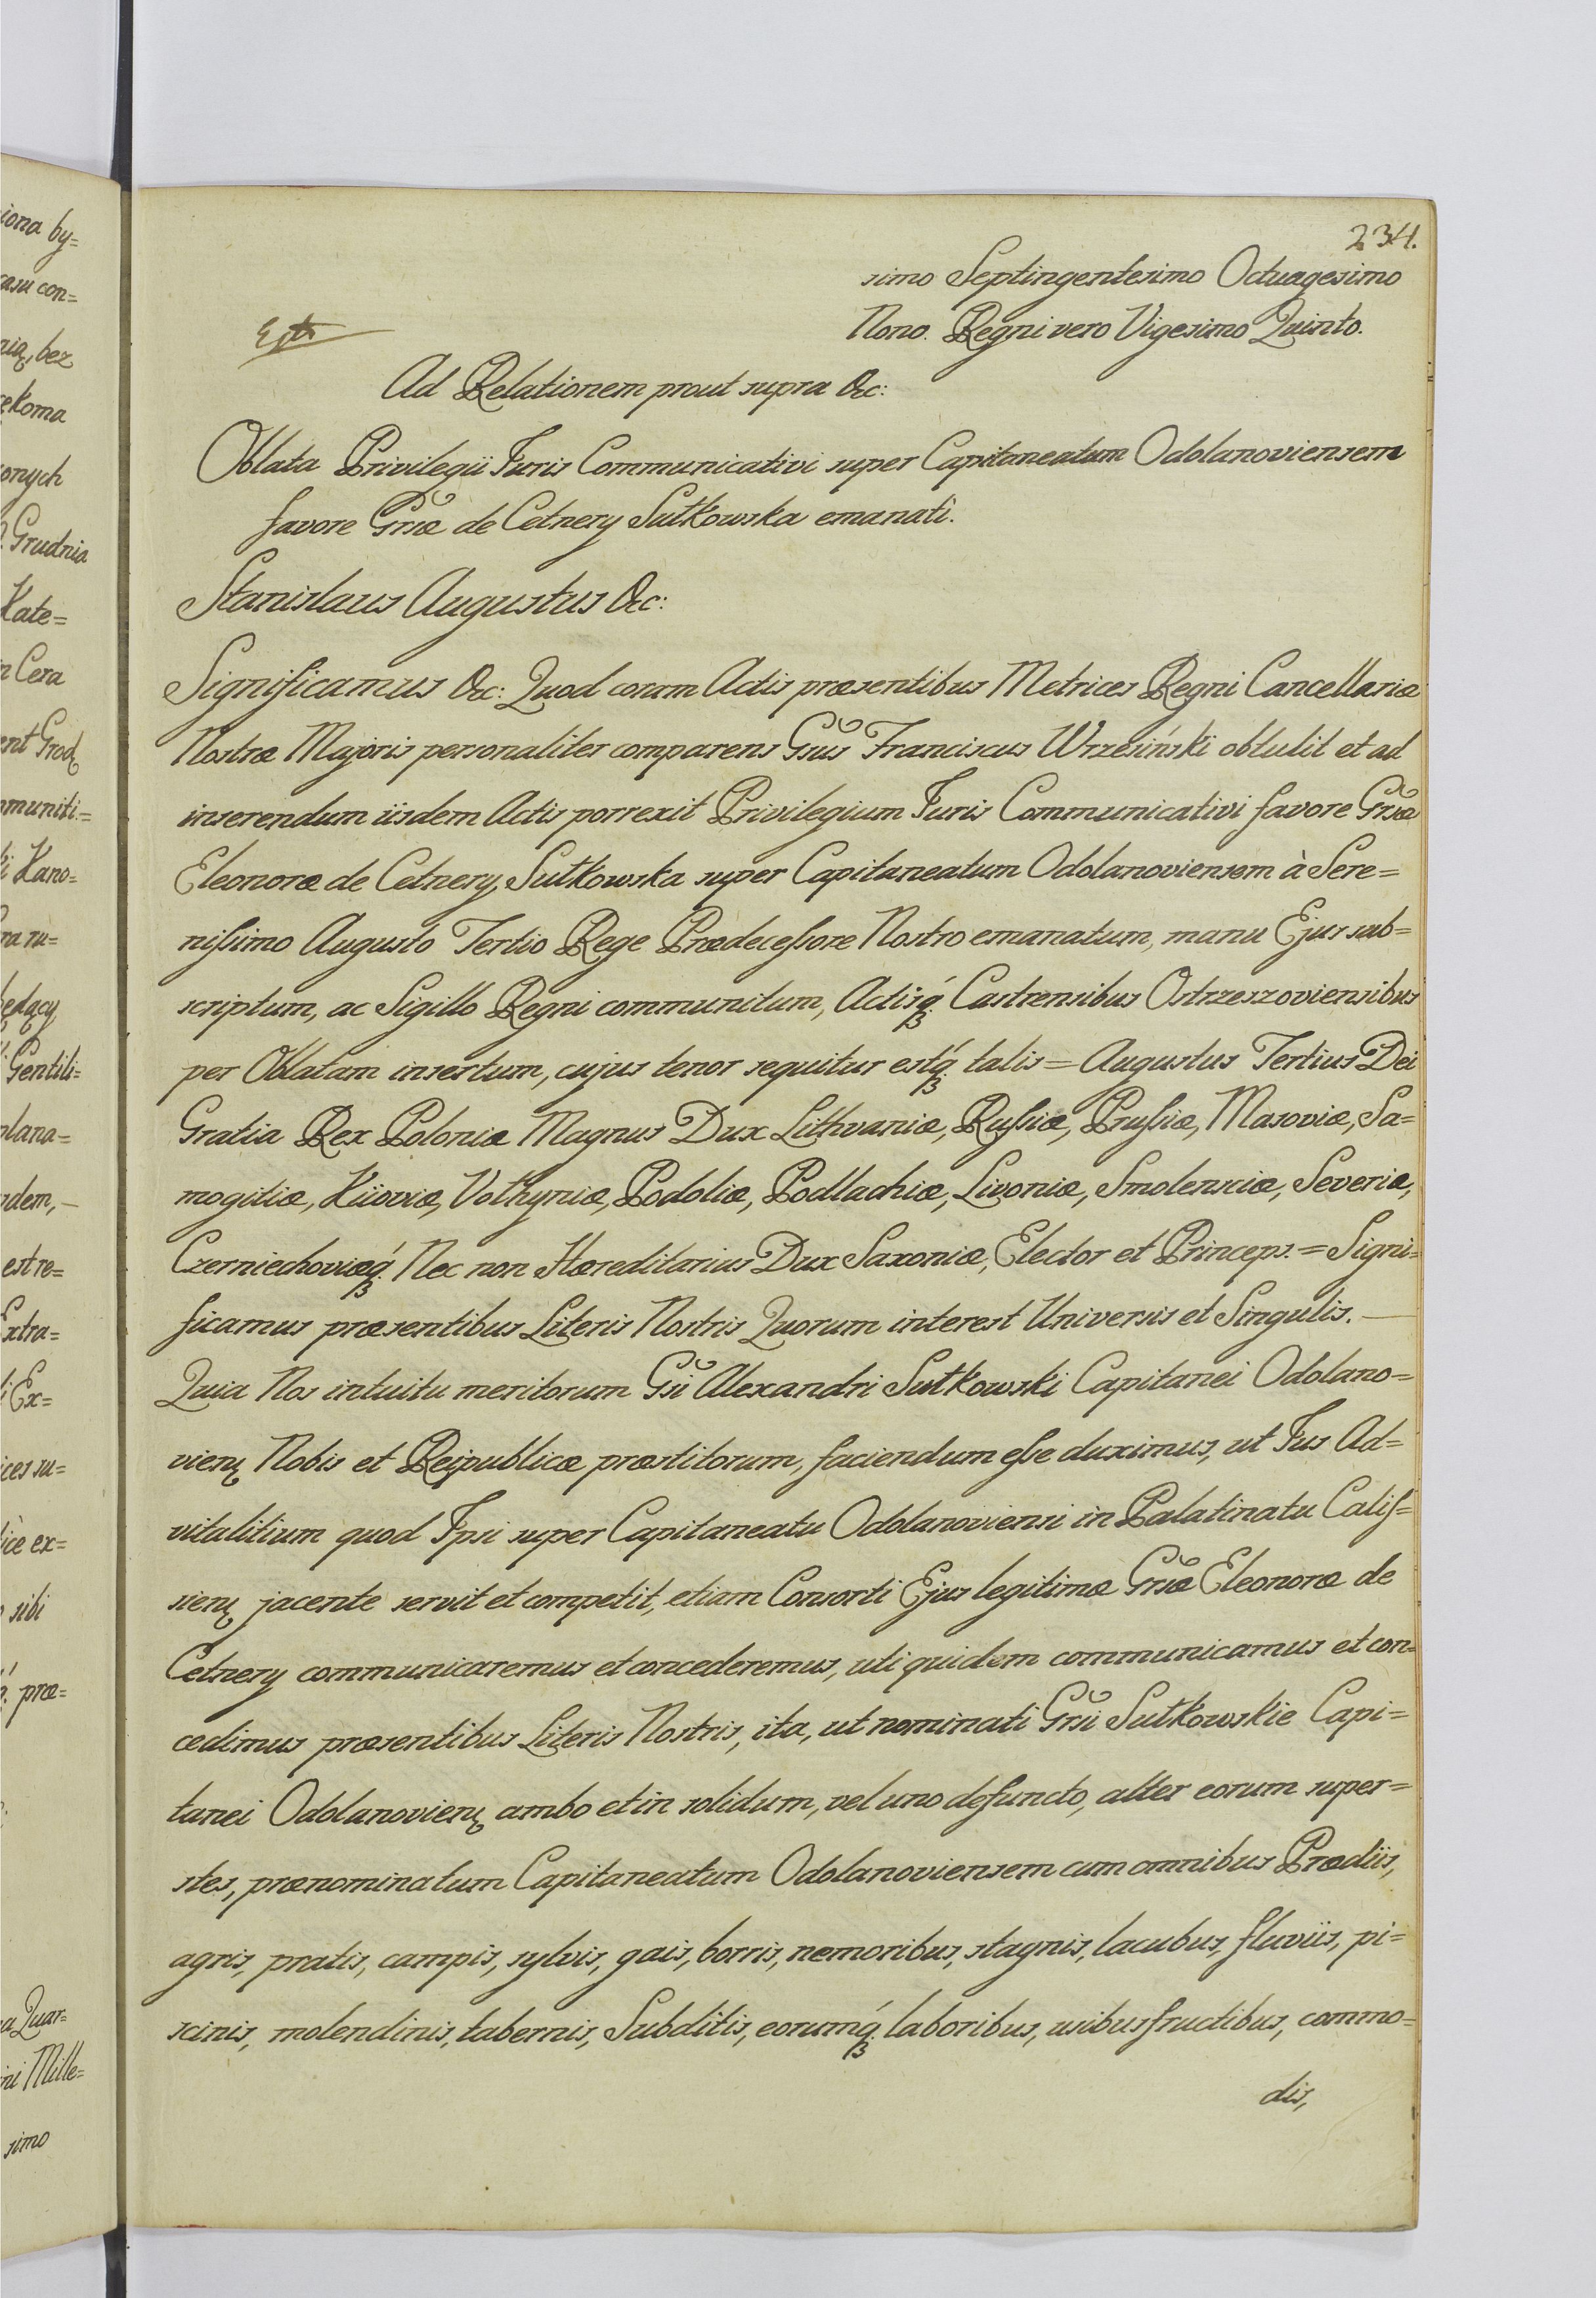 234.
simo Septingentesimo Octuagesimo
Nono. Regni vero Vigesimo Quinto.
Ad Relationem prout supra &c:
Oblata Privilegii Juris Communicativi super Capitaneatum Odolanoviensem
favore Grsæ de Cetnery Sułkowska emanati.
Stanislaus Augustus &c:
Significamus &c: Quod coram Actis præsentibus Metrices Regni Cancellariæ
Nostræ Majoris personaliter comparens Gsus Franciscus Wrzesiński obtulit et ad
inserendum iisdem Actis porrexit Privilegium Juris Communicativi favore Grsæ
Eleonoræ de Cetnery Sułkowska super Capitaneatum Odolanoviensem à Sere=
nissimo Augusto Tertio Rege Prædecessore Nostro emanatum, manu Ejus sub=
scriptum, ac Sigillo Regni communitum, Actisq́ꝫ Castrensibus Ostrzeszoviensibus
per Oblatam insertum, cujus tenor sequitur estq́ꝫ talis = Augustus Tertius Dei
Gratia Rex Poloniæ Magnus Dux Lithvaniæ, Russiæ, Prussiæ, Masoviæ, Sa=
mogitiæ, Kiioviæ, Volhyniæ, Podoliæ, Podlachiæ, Livoniæ, Smolensciæ, Severiæ,
Czerniechoviæq́ꝫ Nec non Hæreditarius Dux Saxoniæ, Elector et Princeps. = Signi=
ficamus præsentibus Literis Nostris Quorum interest Universis et Singulis.
Quia Nos intuitu meritorum Gsi Alexandri Sułkowski Capitanei Odolano=
vienꝫ Nobis et Reipublicæ præstitorum, faciendum esse duximus, ut Jus Ad=
vitalitium quod Ipsi super Capitaneatu Odolanoviensi in Palatinatu Calis=
sienꝫ jacente servit et competit, etiam Consorti Ejus legitimæ Grsæ Eleonoræ de
Cetnery communicaremus et concederemus, uti quidem communicamus et con=
cedimus præsentibus Literis Nostris, ita, ut nominati Grsi Sułkowskie Capi=
tanei Odolanovienꝫ ambo et in solidum, vel uno defuncto, alter eorum super=
stes, prænominatum Capitaneatum Odolanoviensem cum omnibus Prædiis,
agris, pratis, campis, sylvis, gais, borris, nemoribus, stagnis, lacubus, fluviis, pi=
scinis, molendinis, tabernis, Subditis, eorumq́ꝫ laboribus, usibusfructibus, commo=
dis,